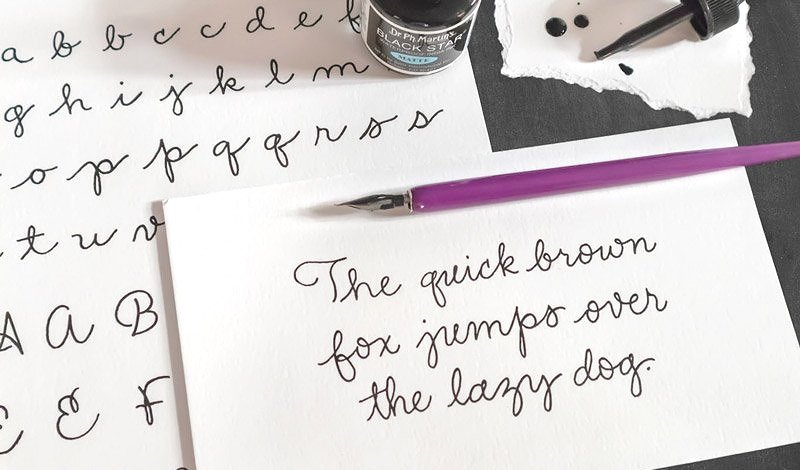 a b b c c d e f
g h i j k l m
o p p q q r s s
t u v
A A B
E E F
Dr. Ph. Martin's
BLACK STAR
MATTE
The quick brown
fox jumps over
the lazy dog.